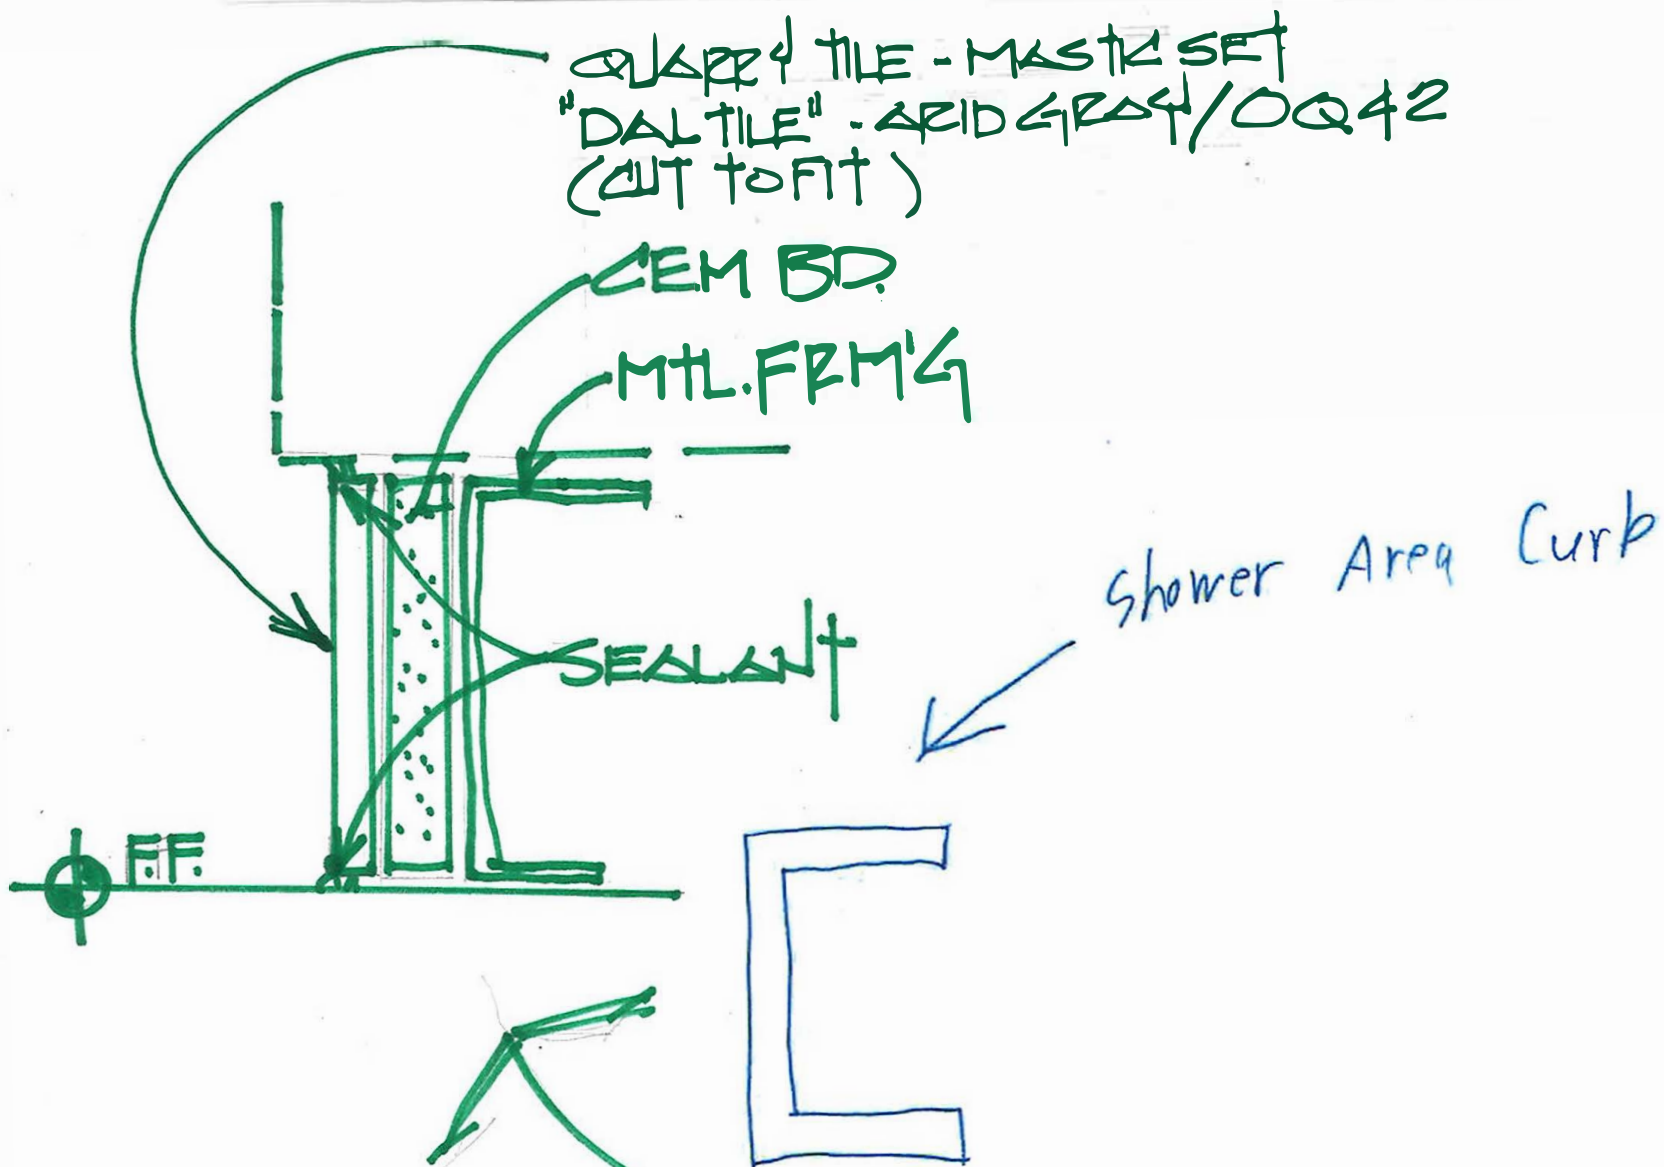 QUARRY TILE - MASTIC SET
"DAL TILE" - ARID GRAY/OQ42
(CUT TO FIT)
CEM BD.
MTL. FRM'G
Shower Area Curb
SEALANT
F.F.